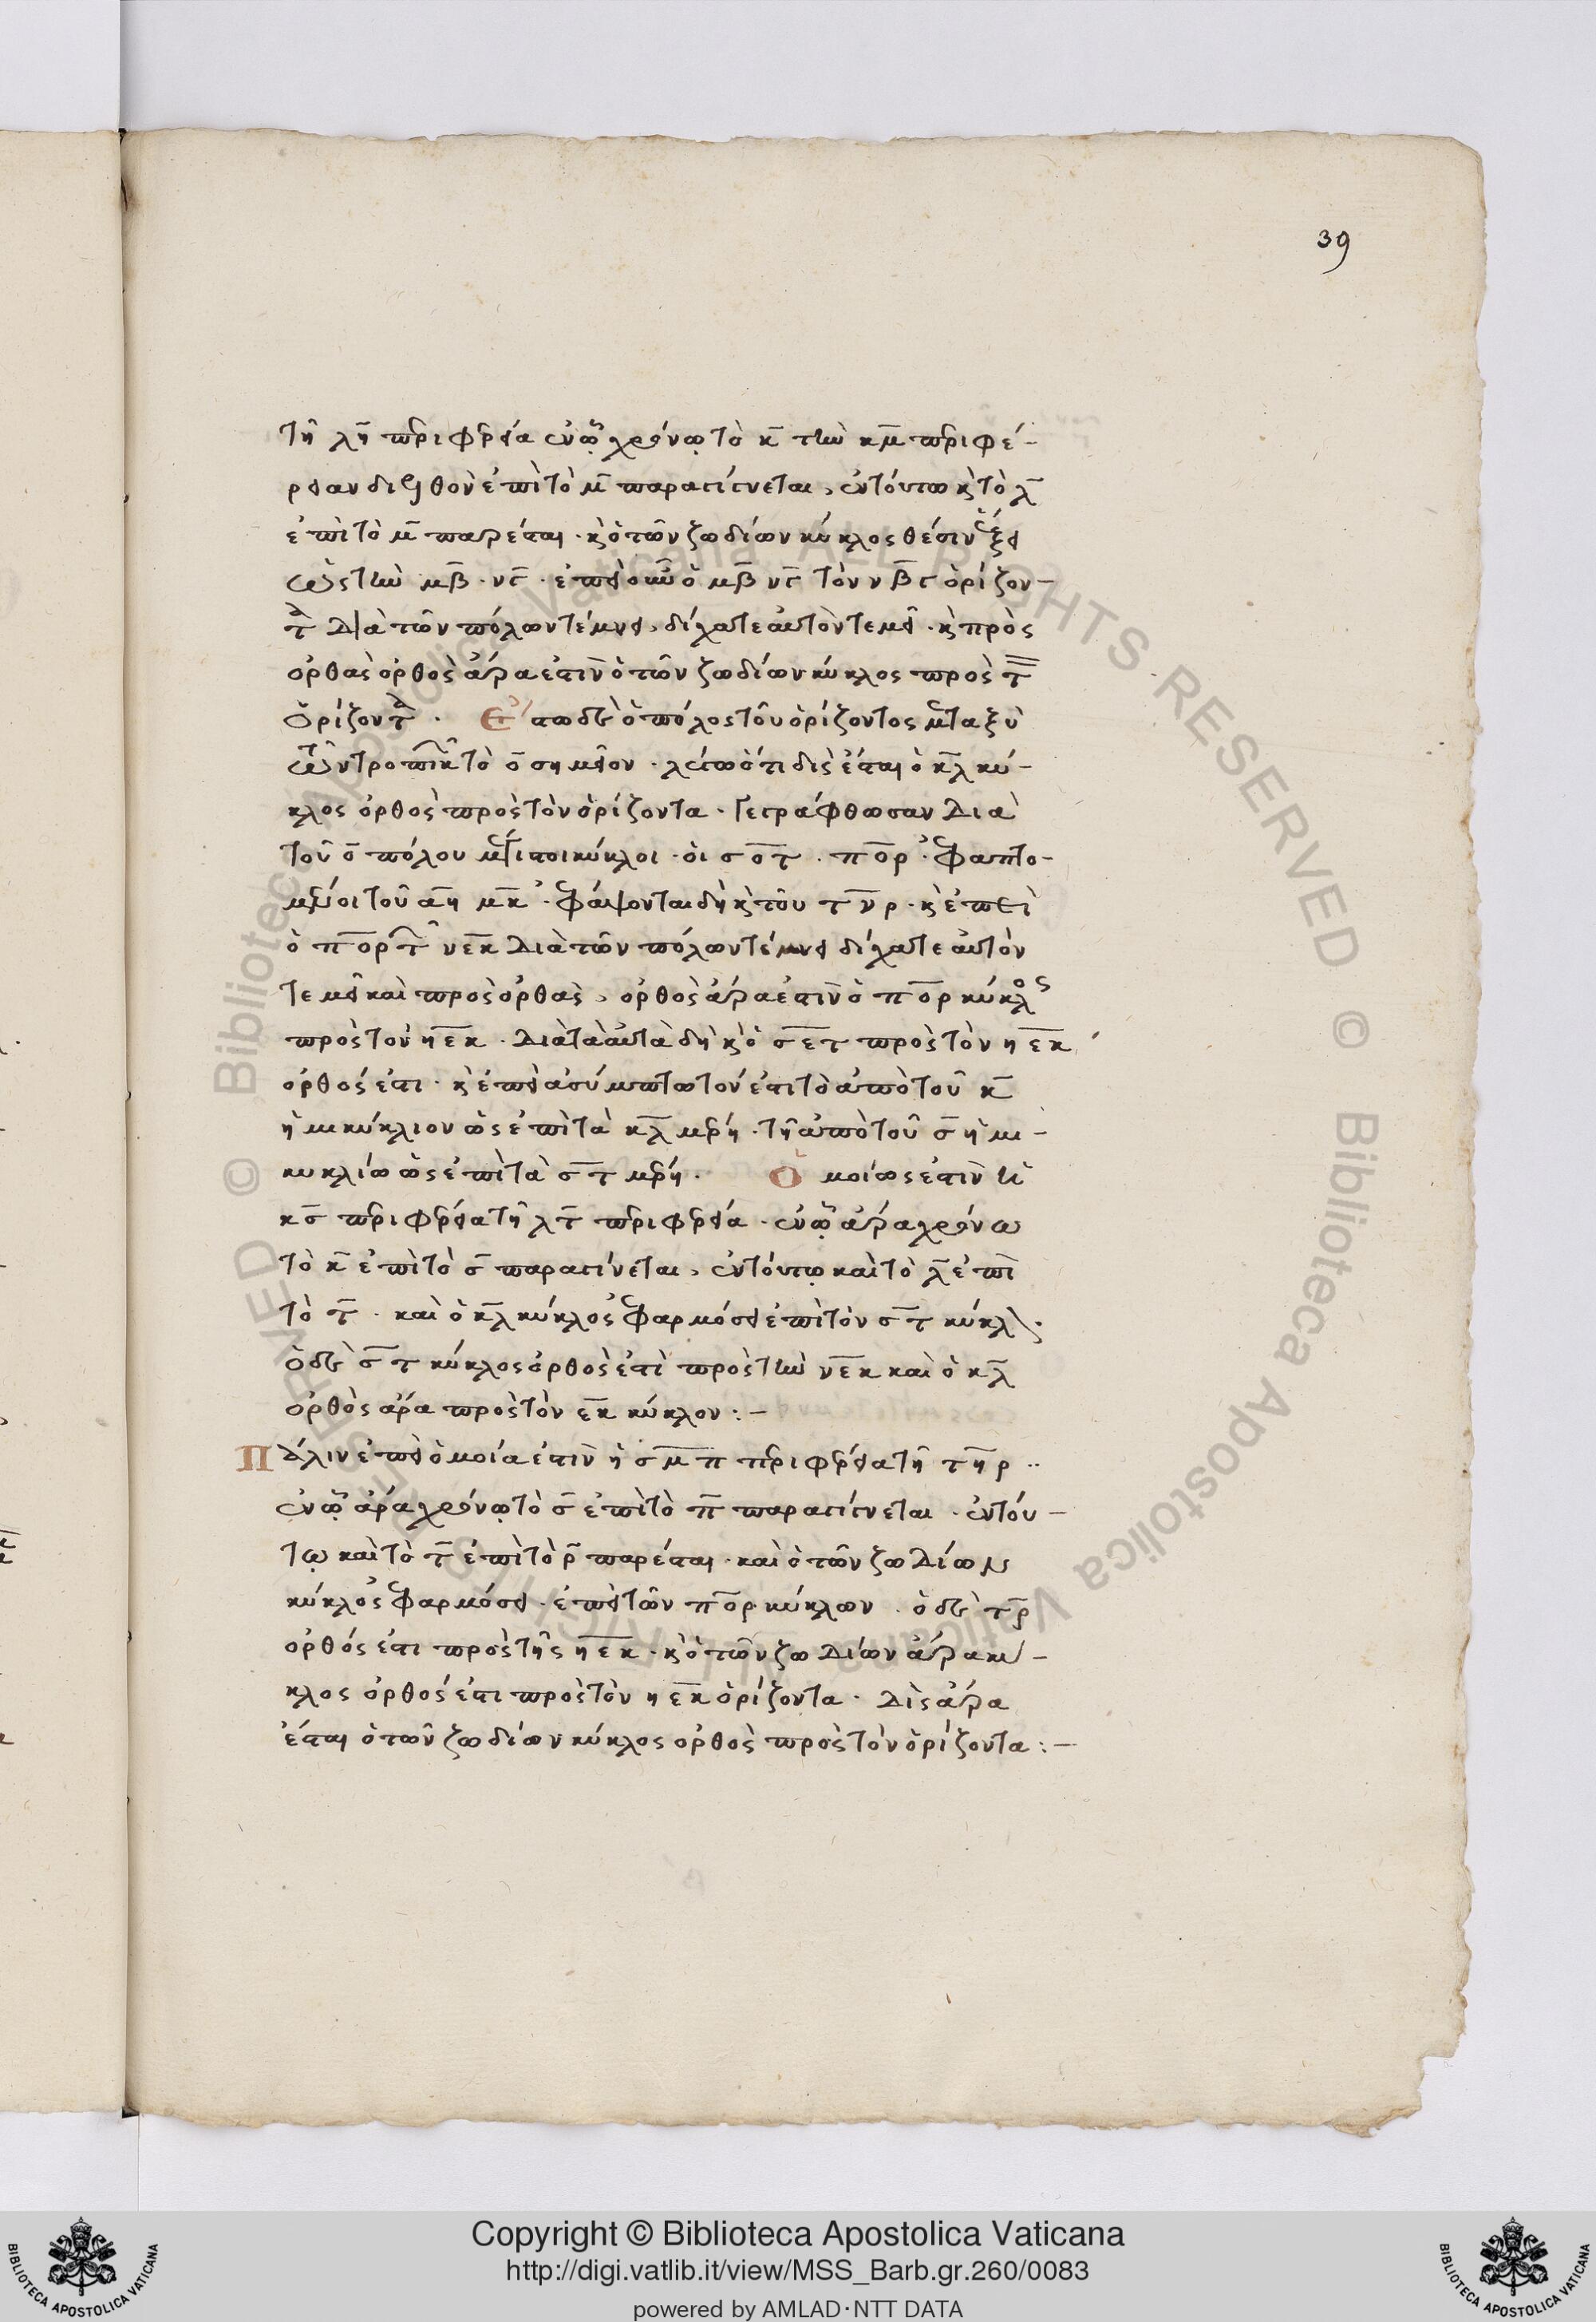 39
τῇ λη περιφερεία ἐν ᾧ χρόνῳ τὸ κ τὴν κμ περιφέ-
ρειαν διελθὸν ἐπὶ τὸ μ παραγίγνεται, ἐν τούτω κ τὸ λ
ἐπὶ τὸ μ παρέσται · κ ὁ τῶν ζωδίων κύκλος θέσιν ἕξει
ὡς τὴν μβ · νγ · ἐπεὶ οὖν ὁ μβ νγ τὸν νβγ ὁρίζον-
τα διὰ τῶν πόλων τέμνει, δίχα τε αὐτὸν τεμεῖ · κ πρὸς
ὀρθάς ὀρθὸς ἄρα ἐστὶν ὁ τῶν ζωδίων κύκλος πρὸς τ
ὁρίζοντα · Ἔστω δὲ ὁ πόλος τοῦ ὁρίζοντος μεταξὺ
τῶν τροπικ τὸ ο σημεῖον · λέγω ὅτι δὶς ἔσται ὁ κλ κύ-
κλος ὀρθὸς πρὸς τὸν ὁρίζοντα · Γεγράφθωσαν διὰ
τοῦ ο πόλου μέγιστοι κύκλοι · οἱ σοτ · πορ · ἐφαπτό-
μενοι τοῦ αη μκ · ἐφάψονται δὴ κ τοῦ τνρ · κ ἐπεὶ
ὁ πορ τ νεκ διὰ τῶν πόλων τέμνει δίχα τε αὐτὸν
τεμεῖ καὶ πρὸς ὀρθὰς, ὀρθὸς ἄρα ἐστὶν ὁ πορ κύκλος
πρὸς τὸν ηεκ · διὰ τὰ αὐτὰ δὴ κ ὁ σετ πρὸς τὸν ηεκ
ὀρθός ἐστι · κ ἐπεὶ ἀσύμπτωτόν ἐστι τὸ ἀπὸ τοῦ κ
ἡμικύκλιον ὡς ἐπὶ τὰ κλ μέρη · τῇ ἀπὸ τοῦ σ ἡμι-
κυκλίω ὡς ἐπὶ τὰ στ μέρη · Ὁμοίως ἐστὶν ἡ
κσ περιφέρεια τῇ λτ περιφερεία · ἐν ᾧ ἄρα χρόνω
τὸ κ ἐπὶ τὸ σ παραγίνεται, ἐν τούτῳ καὶ τὸ λ ἐπὶ
τὸ τ · καὶ ὁ κλ κύκλος ἐφαρμόσει ἐπὶ τὸν στ κύκλ·
ὁ δὲ στ κύκλος ὀρθὸς ἐστὶ πρὸς τὴν νεκ καὶ ὁ κλ
ὀρθὸς ἄρα πρὸς τὸν εκ κύκλον :-
Πάλιν ἐπεὶ ὁμοία ἐστὶν ἡ σμπ περιφέρεια τῇ τηρ ··
ἐν ᾧ ἄρα χρόνῳ τὸ σ ἐπὶ τὸ π παραγίγνεται · ἐν τού-
τῳ καὶ τὸ τ ἐπὶ τὸ ρ παρέσται · καὶ ὁ τῶν ζωδίων
κύκλος ἐφαρμόσει · ἐπεὶ τῶν πορ κύκλων · ὁ δὲ τρ
ὀρθός ἐστι πρὸς τῆς ηεκ · κ ὁ τῶν ζωδίων ἄρα κύ-
κλος ὀρθός ἐστι πρὸς τὸν ηεκ ὁρίζοντα · δὶς ἄρα
ἔσται ὁ τῶν ζωδίων κύκλος ὀρθὸς πρὸς τὸν ὁρίζοντα :-
Copyright © Biblioteca Apostolica Vaticana
http://digi.vatlib.it/view/MSS_Barb.gr.260/0083
powered by AMLAD·NTT DATA